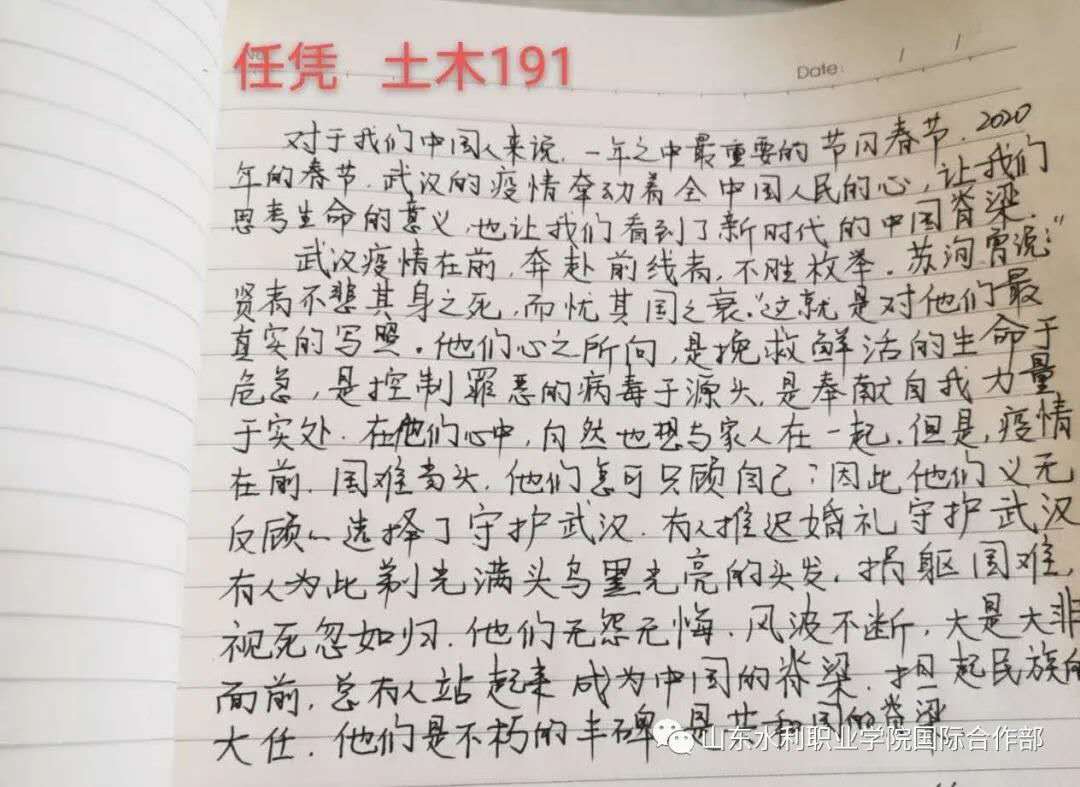 任凭 土木191
Date: / /
对于我们中国人来说,一年之中最重要的节闪春节,2020
年的春节,武汉的疫情牵动着全中国人民的心,让我们
思考生命的意义,也让我们看到了新时代的中国脊梁.
武汉疫情在前,奔赴前线者,不胜枚举。苏洵曾说:"
贤者不悲其身之死,而忧其国之衰."这就是对他们最
真实的写照。他们心之所向,是挽救鲜活的生命于
危急,是控制罪恶的病毒于源头,是奉献自我力量
于实处.在他们心中,自然也想与家人在一起.但是,疫情
在前,国难当头,他们怎可只顾自己;因此他们义无
反顾 选择了守护武汉.有人推迟婚礼守护武汉
有人为此剃光满头乌黑光亮的头发.捐躯国难,
视死忽如归.他们无怨无悔.风波不断,大是大非
面前,总有人站起来成为中国的脊梁.担起民族的
大任.他们是不朽的丰碑 是共和国的脊梁
山东水利职业学院国际合作部